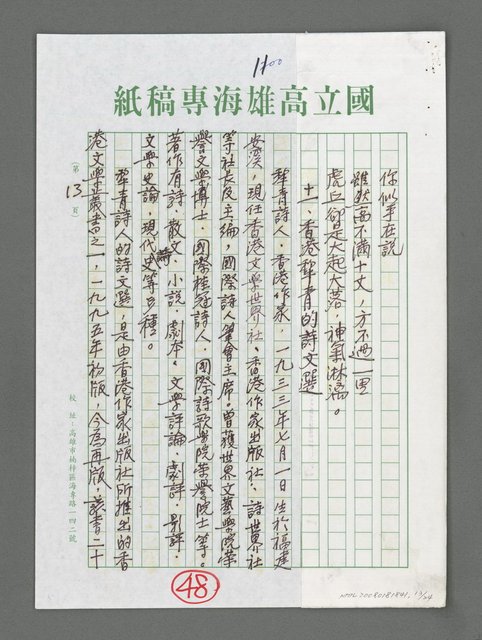 1100
國立高雄海專稿紙
你似乎在說
雖然高不滿十丈,方不過一里
虎丘卻是大起大落,神氣淋漓。
十一、香港犂青的詩文選
犂青詩人、香港作家,一九三三年七月一日生於福建
安溪,現任香港文學世界社、香港作家出版社、詩世界社
等社長及主編,國際詩人筆會主席。曾獲世界文藝學院榮
譽文學博士、國際桂冠詩人、國際詩歌學院榮譽院士等。
著作有詩、散文、小說、劇本、文學評論、劇評、影評、
文學史論,現代詩史等
犂青詩人的詩文選,是由香港作家出版社所推出的香
港文學叢書之一,一九九五年初版,今為再版,該書二十
(第13頁)
校址:高雄市楠梓區海專路一四二號
48
NMTL20080181841, 13/24